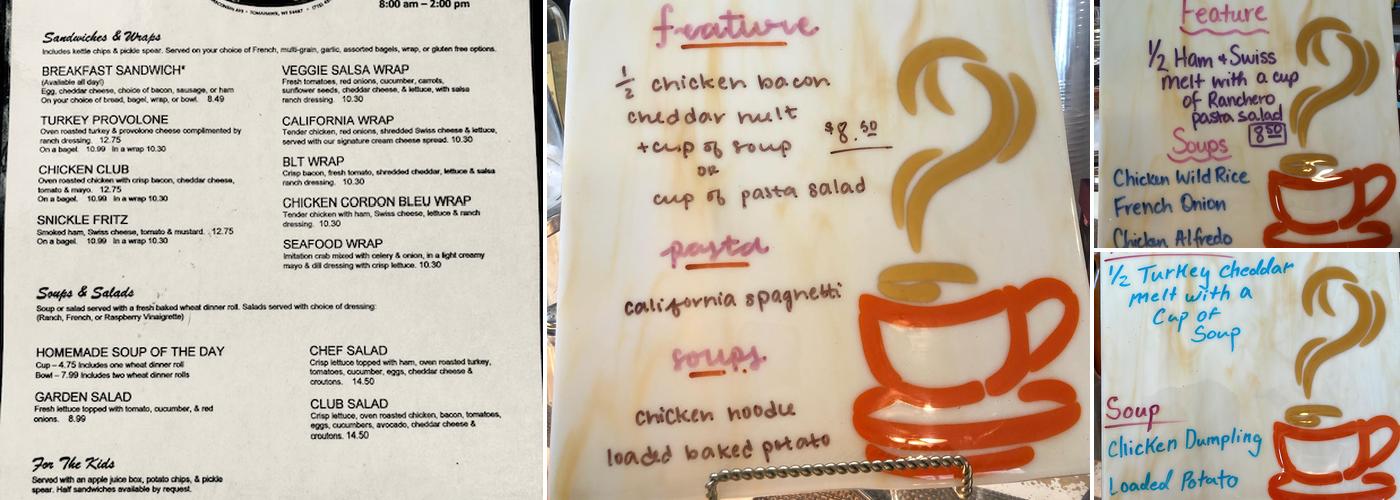 WISCONSIN AVE • TOMAHAWK, WI 54487 •
8:00 am – 2:00 pm
Sandwiches & Wraps
Includes kettle chips & pickle spear. Served on your choice of French, multi-grain, garlic, assorted bagels, wrap, or gluten free options.
BREAKFAST SANDWICH*
(Available all day!)
Egg, cheddar cheese, choice of bacon, sausage, or ham
On your choice of bread, bagel, wrap, or bowl. 8.49
TURKEY PROVOLONE
Oven roasted turkey & provolone cheese complimented by
ranch dressing. 12.75
On a bagel. 10.99 In a wrap 10.30
CHICKEN CLUB
Oven roasted chicken with crisp bacon, cheddar cheese,
tomato & mayo. 12.75
On a bagel. 10.99 In a wrap 10.30
SNICKLE FRITZ
Smoked ham, Swiss cheese, tomato & mustard. 12.75
On a bagel. 10.99 In a wrap 10.30
VEGGIE SALSA WRAP
Fresh tomatoes, red onions, cucumber, carrots,
sunflower seeds, cheddar cheese, & lettuce, with salsa
ranch dressing. 10.30
CALIFORNIA WRAP
Tender chicken, red onions, shredded Swiss cheese & lettuce,
served with our signature cream cheese spread. 10.30
BLT WRAP
Crisp bacon, fresh tomato, shredded cheddar, lettuce & salsa
ranch dressing. 10.30
CHICKEN CORDON BLEU WRAP
Tender chicken with ham, Swiss cheese, lettuce & ranch
dressing. 10.30
SEAFOOD WRAP
Imitation crab mixed with celery & onion, in a light creamy
mayo & dill dressing with crisp lettuce. 10.30
Soups & Salads
Soup or salad served with a fresh baked wheat dinner roll. Salads served with choice of dressing:
(Ranch, French, or Raspberry Vinaigrette)
HOMEMADE SOUP OF THE DAY
Cup – 4.75 Includes one wheat dinner roll
Bowl – 7.99 Includes two wheat dinner rolls
GARDEN SALAD
Fresh lettuce topped with tomato, cucumber, & red
onions. 8.99
CHEF SALAD
Crisp lettuce topped with ham, oven roasted turkey,
tomatoes, cucumber, eggs, cheddar cheese &
croutons. 14.50
CLUB SALAD
Crisp lettuce, oven roasted chicken, bacon, tomatoes,
eggs, cucumbers, avocado, cheddar cheese &
croutons. 14.50
For The Kids
Served with an apple juice box, potato chips, & pickle
spear. Half sandwiches available by request.
feature
1/2 chicken bacon
cheddar melt
+ cup of soup $8.50
OR
cup of pasta salad
pasta
california spaghetti
soups
chicken noodle
loaded baked potato
Feature
1/2 Ham + Swiss
melt with a cup
of Ranchero
pasta salad
8 50
Soups
Chicken Wild Rice
French Onion
Chicken Alfredo
1/2 Turkey Cheddar
melt with a
Cup of
Soup
Soup
Chicken Dumpling
Loaded Potato